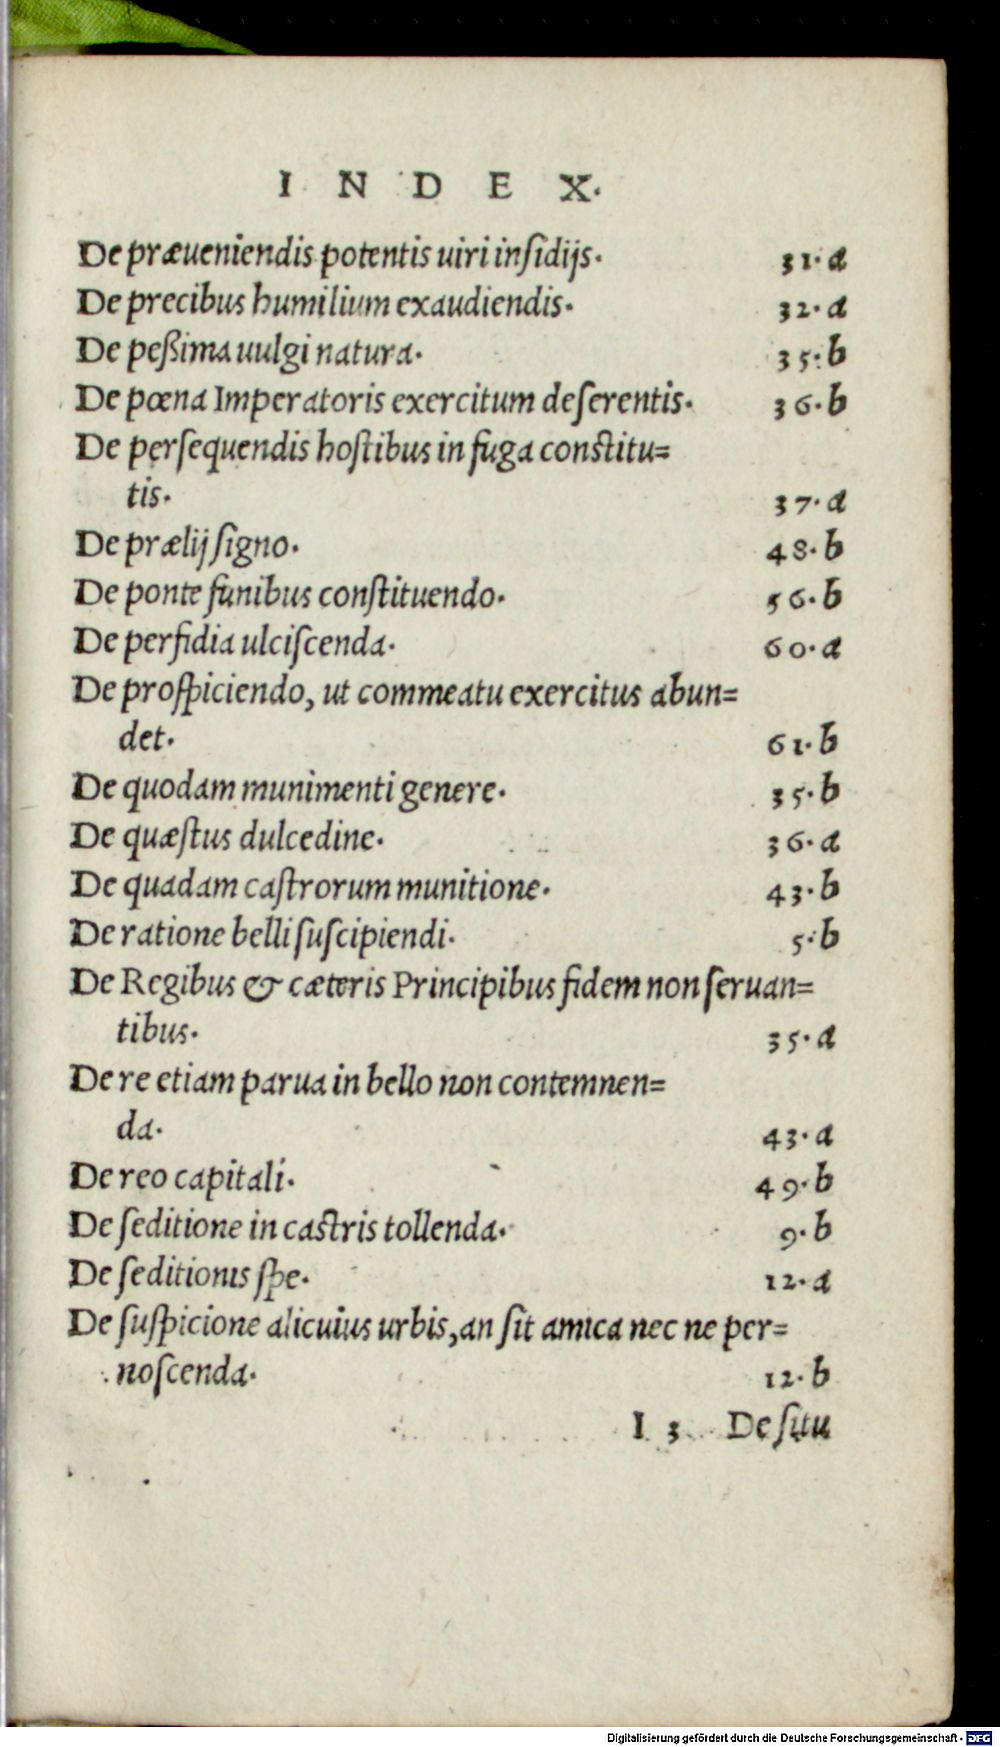 INDEX.
De præueniendis potentis uiri insidijs. 31. a
De precibus humilium exaudiendis. 32. a
De peßima uulgi natura. 35. b
De pœna Imperatoris exercitum deserentis. 36. b
De persequendis hostibus in fuga constitu=
tis. 37. a
De prælij signo. 48. b
De ponte funibus constituendo. 56. b
De perfidia ulciscenda. 60. a
De prospiciendo, ut commeatu exercitus abun=
det. 61. b
De quodam munimenti genere. 35. b
De quæstus dulcedine. 36. a
De quadam castrorum munitione. 43. b
De ratione belli suscipiendi. 5. b
De Regibus & cæteris Principibus fidem non seruan=
tibus. 35. a
De re etiam parua in bello non contemnen=
da. 43. a
De reo capitali. 49. b
De seditione in castris tollenda. 9. b
De seditionis spe. 12. a
De suspicione alicuius urbis, an sit amica nec ne per=
noscenda. 12. b
I 3 De situ
Digitalisierung gefördert durch die Deutsche Forschungsgemeinschaft - DFG